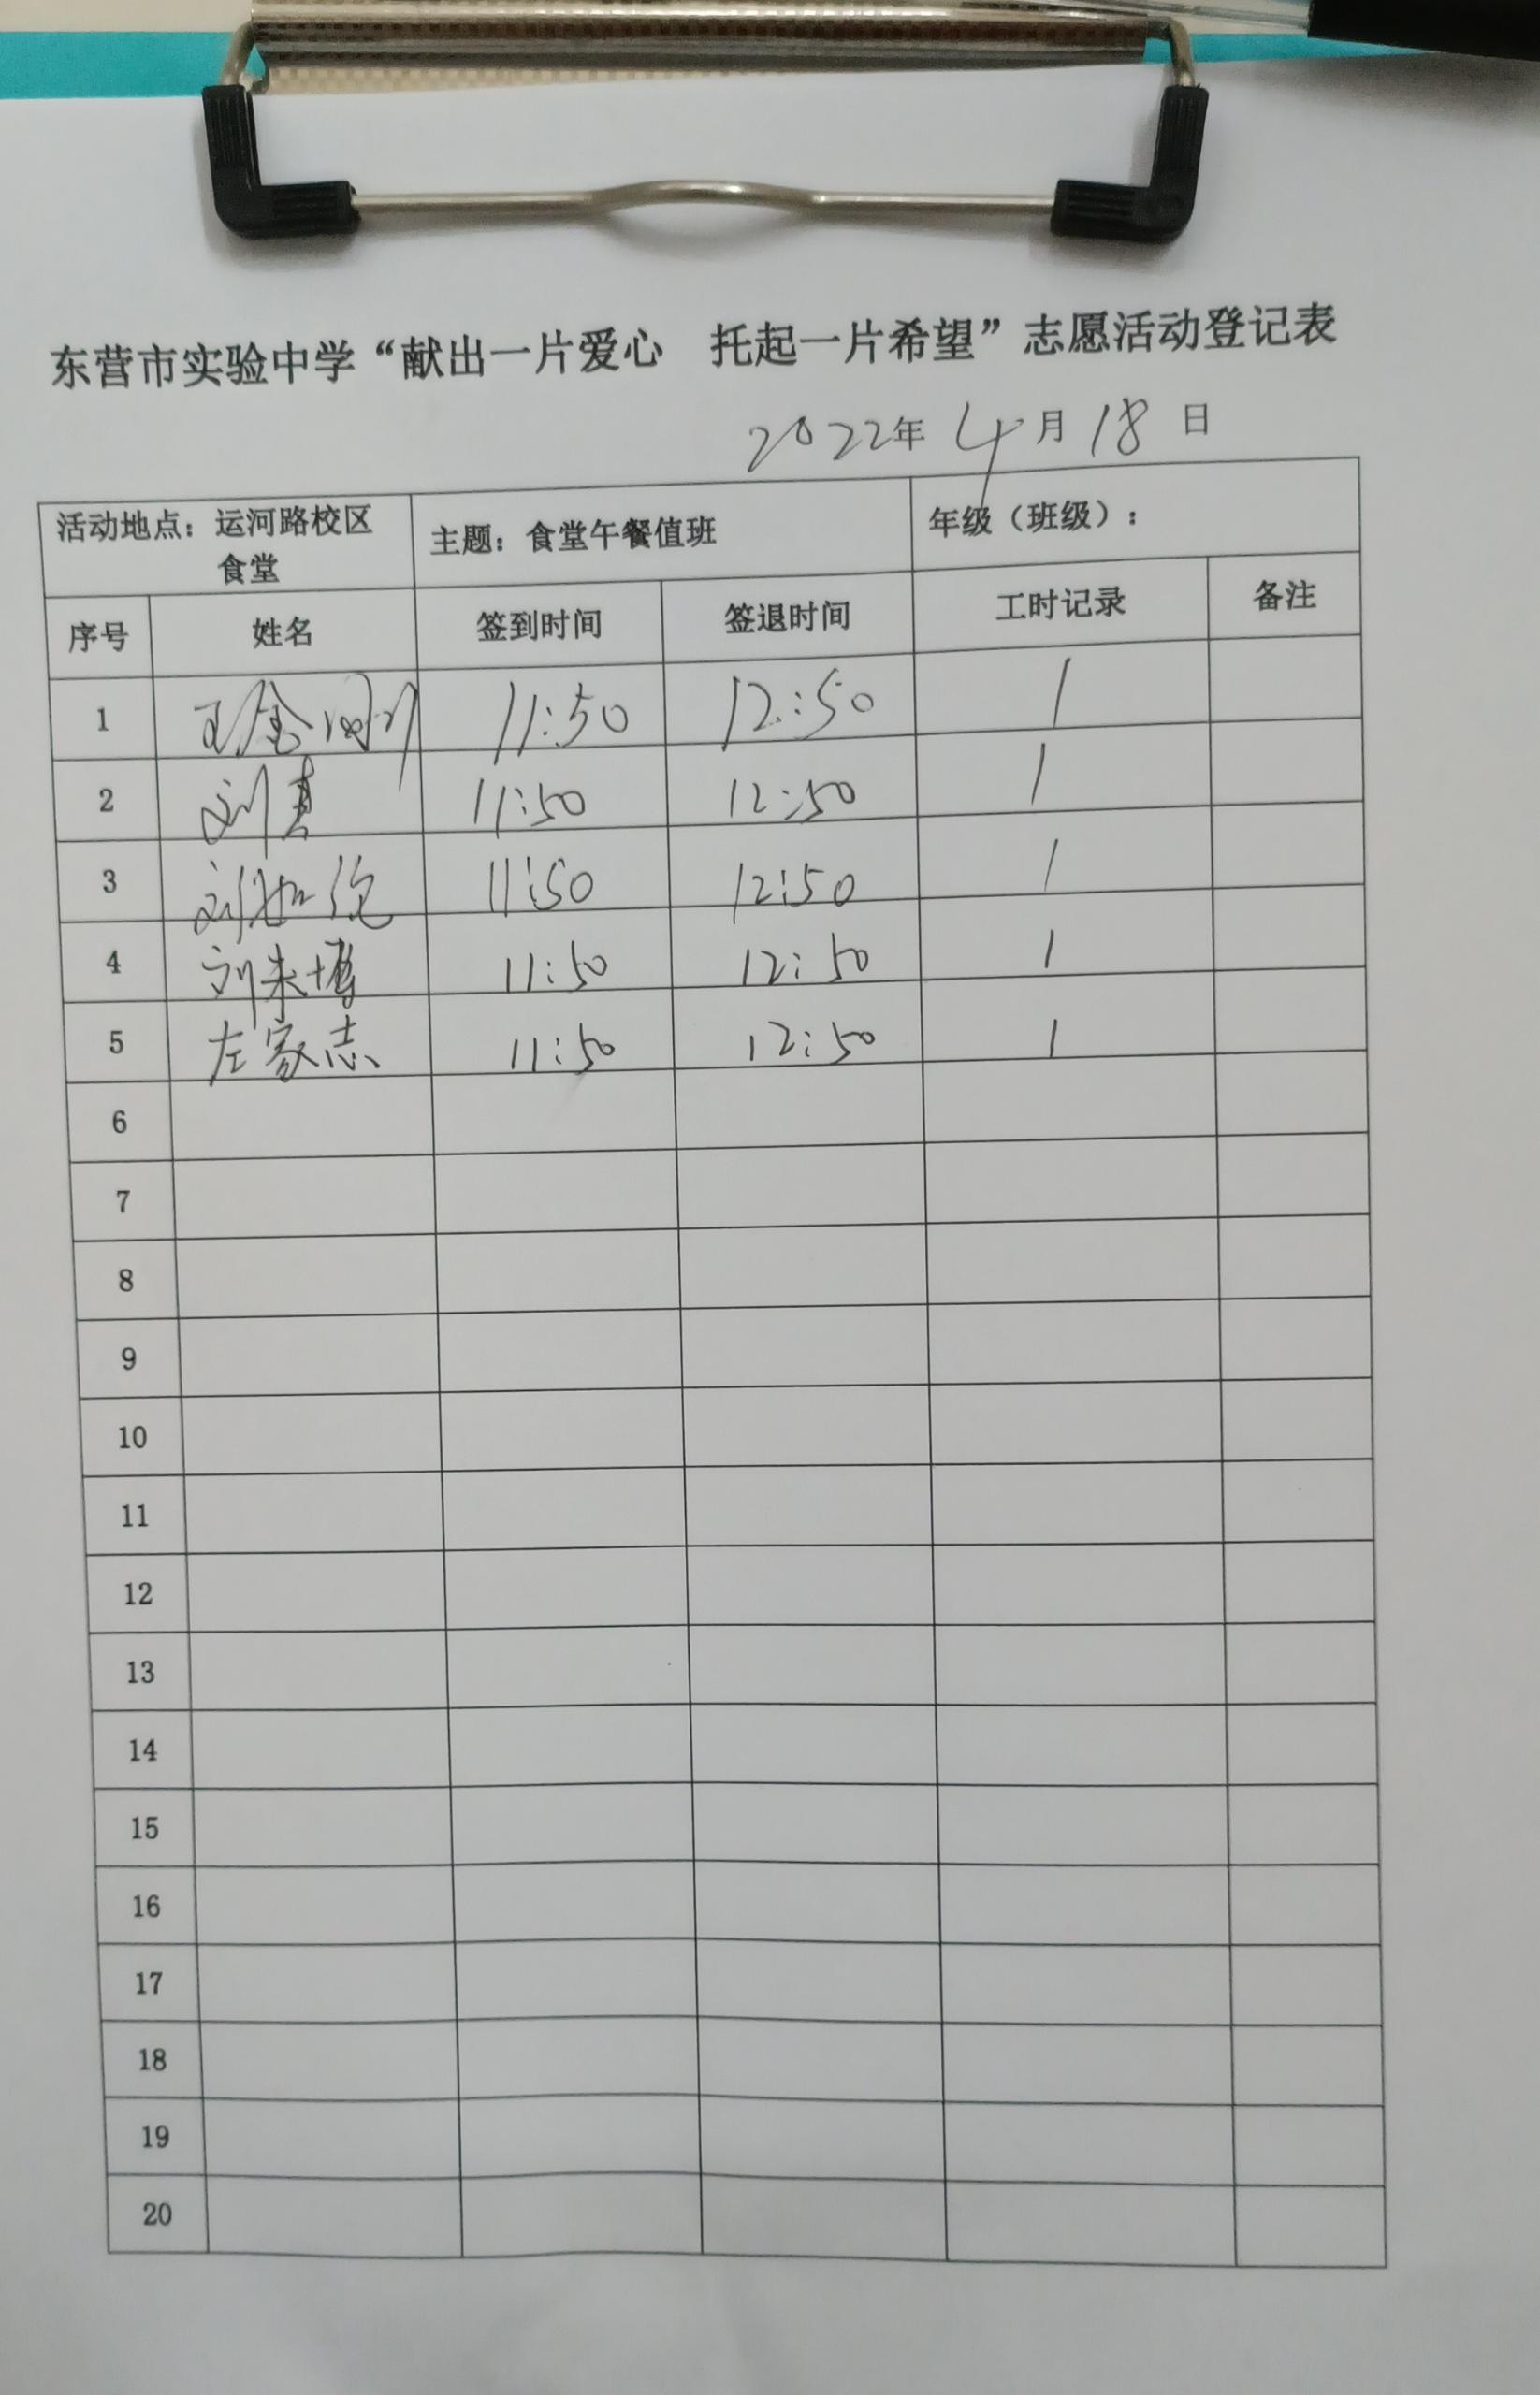 东营市实验中学“献出一片爱心 托起一片希望”志愿活动登记表
2022年 4月 18日
活动地点：运河路校区 主题：食堂午餐值班 年级（班级）：
食堂
序号 姓名 签到时间 签退时间 工时记录 备注
1 11:50 12:50 1
2 刘 11:50 12:50 1
3 刘 11:50 12:50 1
4 刘 11:50 12:50 1
5 左家志 11:50 12:50 1
6
7
8
9
10
11
12
13
14
15
16
17
18
19
20